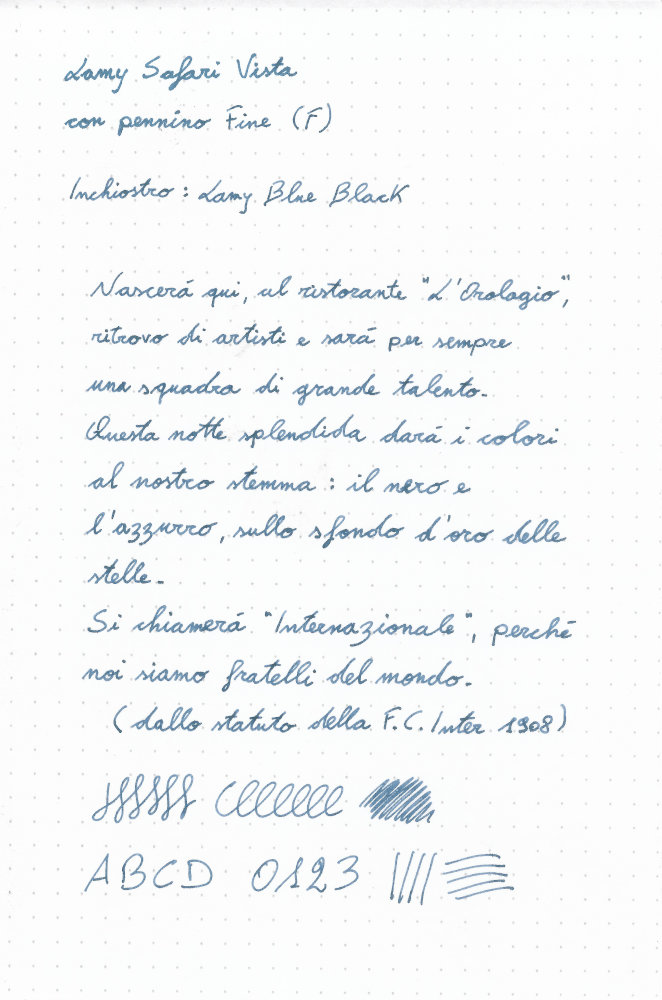 Lamy Safari Vista
con pennino Fine (F)
Inchiostro : Lamy Blue Black
Nascerá qui, al ristorante "L'Orologio",
ritrovo di artisti e sará per sempre
una squadra di grande talento.
Questa notte splendida dará i colori
al nostro stemma : il nero e
l'azzurro, sullo sfondo d'oro delle
stelle.
Si chiamerá "Internazionale", perché
noi siamo fratelli del mondo.
(dallo statuto della F.C. Inter 1908)
ABCD 0123